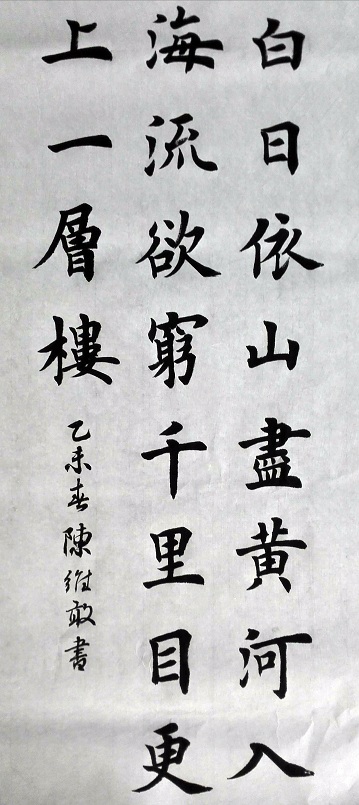 白日依山盡黄河入
海流欲窮千里目更
上一層樓
乙未春陳維敢書